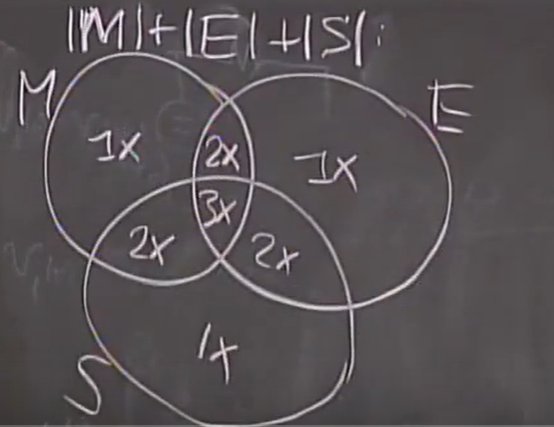 |M|+|E|+|S|:
M
E
1x 2x 1x
3x
2x 2x
1x
S